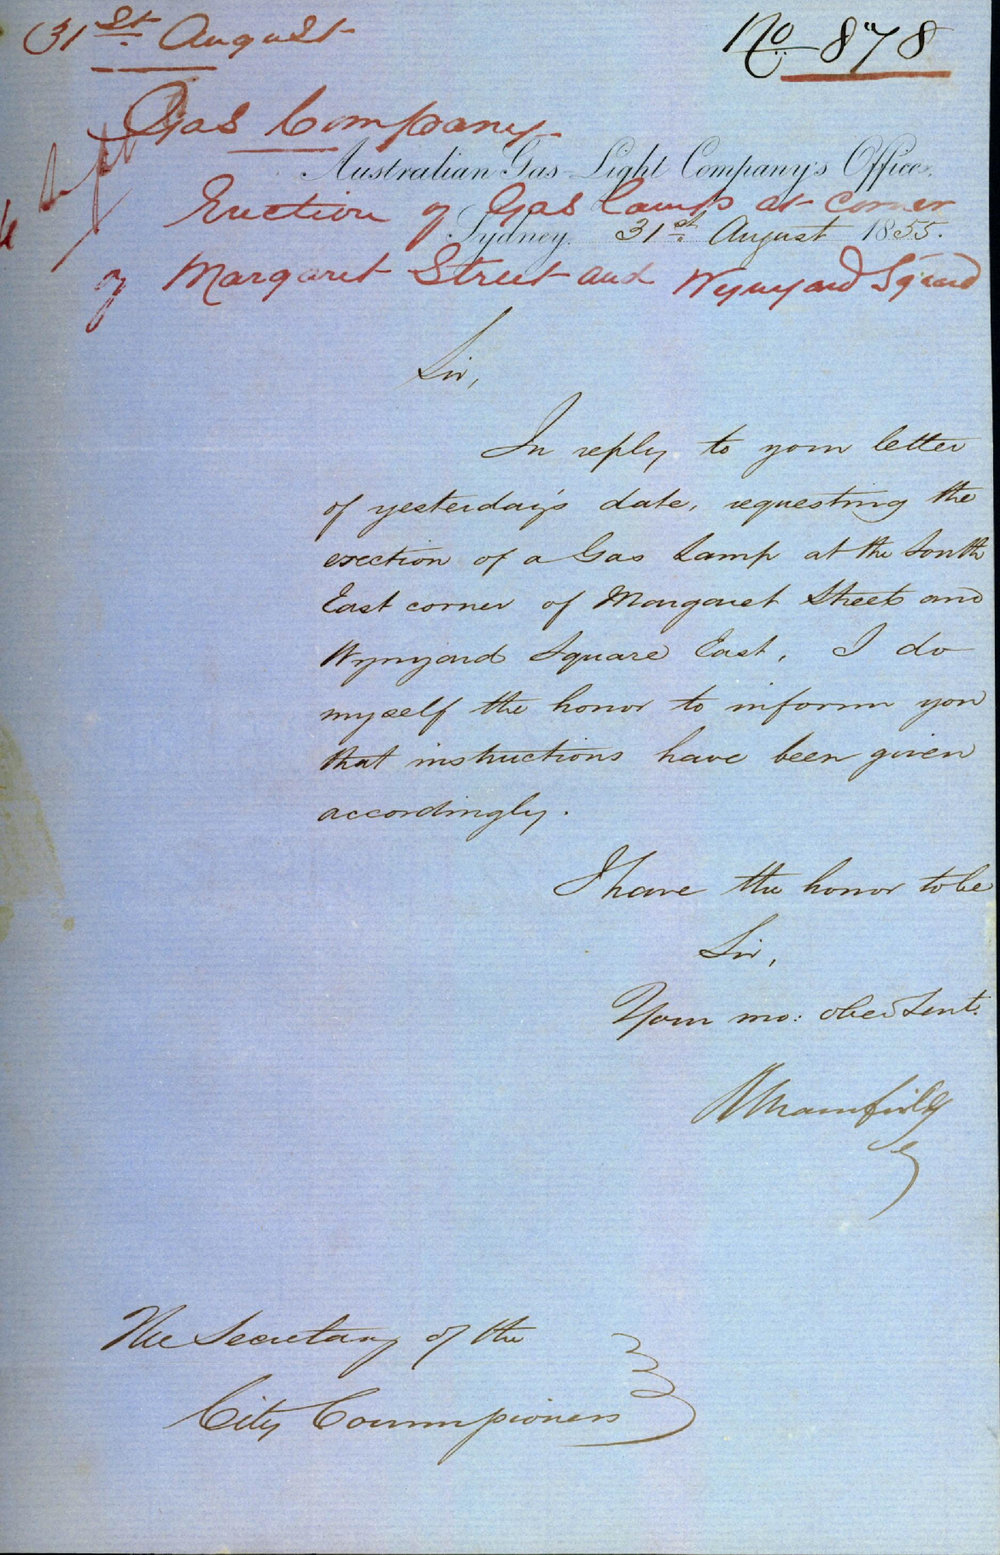 31st August
No 878
Gas Company
Australian Gas Light Company's Office.
Erection of Gas Lamps at corner
Sydney. 31st August 1855.
of Margaret Street and Wynyard Square
Sir,
In reply to your letter
of yesterday's date, requesting the
erection of a Gas Lamp at the South
East corner of Margaret Street and
Wynyard Square East, I do
myself the honor to inform you
that instructions have been given
accordingly.
I have the honor to be
Sir,
Your mo: obed Servt.
Mansfield
The Secretary of the
City Commissioners